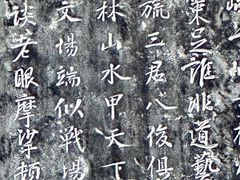 策足誰非道藝
流三君八俊俱
林山水甲天下
文場端似戰場
談老眼摩挲頻